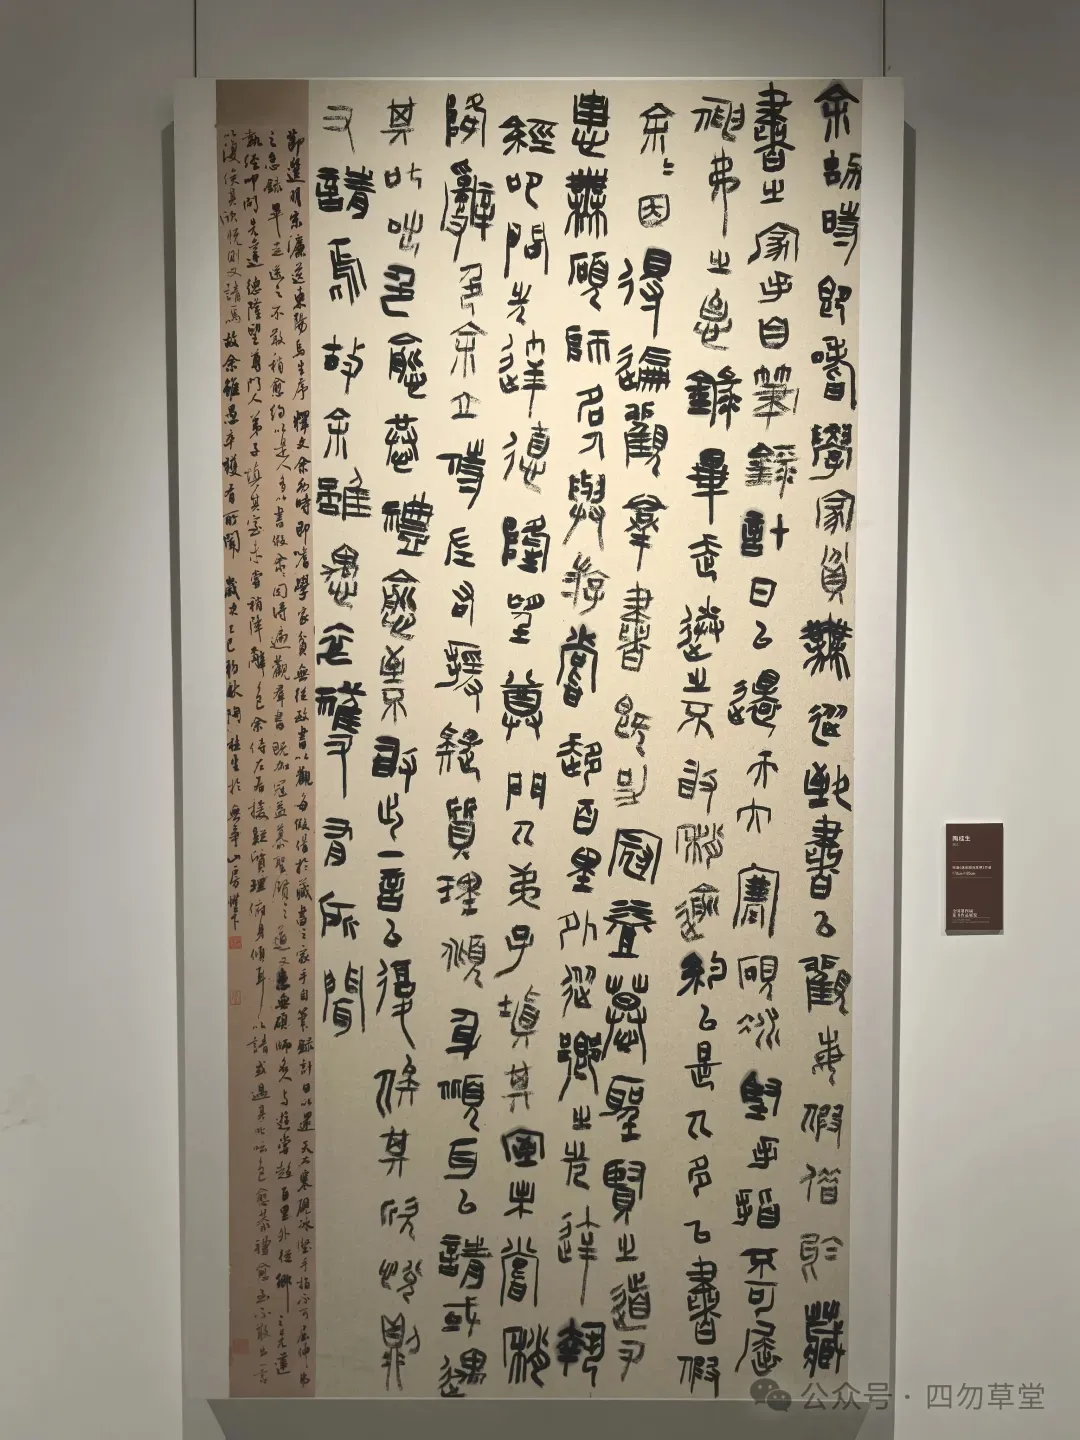 余幼時即嗜學家貧無從致書以觀每假借於藏
書之家手自筆錄計日以還天大寒硯冰堅手指不可屈
伸弗之怠錄畢走送之不敢稍逾約以是人多以書假
余々因得遍觀群書既加冠益慕聖賢之道又
患無碩師名人與游嘗趨百里外從鄉之先達執
經叩問先達德隆望尊門人弟子填其室未嘗稍
降辭色余立侍左右援疑質理傾身傾耳以請或遇
其叱咄色愈恭禮愈至不敢出一言以復俟其欣悅則
又請焉故余雖愚卒獲有所聞
節選明宋濂送東陽馬生序 釋文余幼時即嗜學家貧無從致書以觀每假借於藏書之家手自筆錄計日以還天大寒硯冰堅手指不可屈伸弗
之怠錄畢走送之不敢稍逾約以是人多以書假余々因得遍觀群書既加冠益慕聖賢之道又患無碩師名人與遊嘗趨百里外從鄉之先達
執經叩問先達德隆望尊門人弟子填其室未嘗稍降辭色余侍左右援疑質理俯身傾耳以請或遇其叱咄色愈恭禮愈至不敢出一言
以復俟其欣悅則又請焉故余雖愚卒獲有所聞 歲次乙巳初秋陶桂生於無爭山房燈下
陶桂生
公众号·四勿草堂